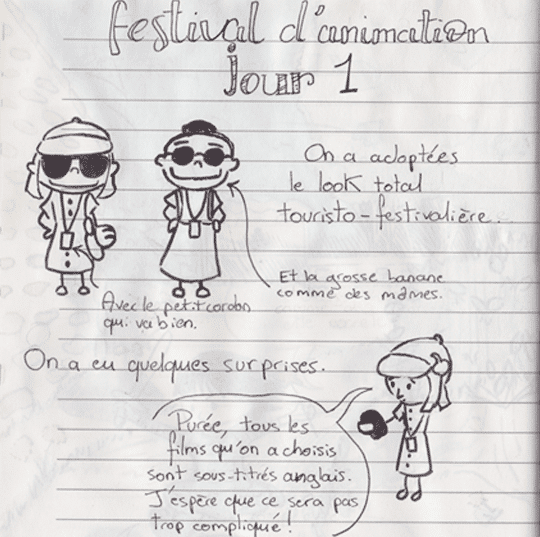 festival d'animation
jour 1
On a adoptées
le look total
touristo-festivalière.
Et la grosse banane
comme des mômes.
Avec le petit cordon
qui va bien.
On a eu quelques surprises.
Purée, tous les
films qu'on a choisis
sont sous-titrés anglais.
J'espère que ce sera pas
trop compliqué !